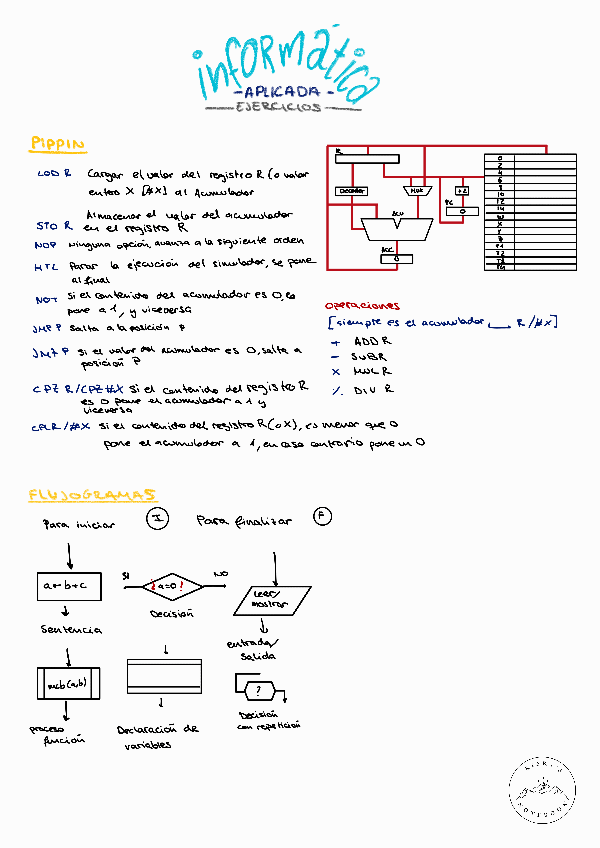 informática
- APLICADA -
EJERCICIOS
PIPPIN
LOD R Cargar el valor del registro R (o valor
entero X [#X] al Acumulador
STO R Almacenar el valor del acumulador
en el registro R
NOP Ninguna opción, avanza a la siguiente orden
HTL Parar la ejecución del simulador, se pone
al final
NOT Si el contenido del acumulador es 0, lo
pone a 1, y viceversa
JMP P Salta a la posición P
JMZ P Si el valor del acumulador es 0, salta a
posición P
CPZ R/CPZ #X Si el contenido del registro R
es 0 pone el acumulador a 1 y
viceversa
CPL R/#X Si el contenido del registro R (o X), es menor que 0
pone el acumulador a 1, en caso contrario pone un 0
R
Decoder
MUX
+2
PC
0
ALU
ACC
0
0
2
4
6
8
10
12
14
W
X
Y
Z
T1
T2
T3
T4
Operaciones
[siempre es el acumulador ___ R/#X]
+ ADD R
- SUB R
x MUL R
% DIV R
FLUJOGRAMAS
Para iniciar I
Para finalizar F
a←b+c
Sentencia
SI
¿a=0?
NO
Decisión
Leer/
mostrar
entrada/
salida
mcb(a,b)
proceso
función
Declaración de
variables
?
Decisión
con repetición